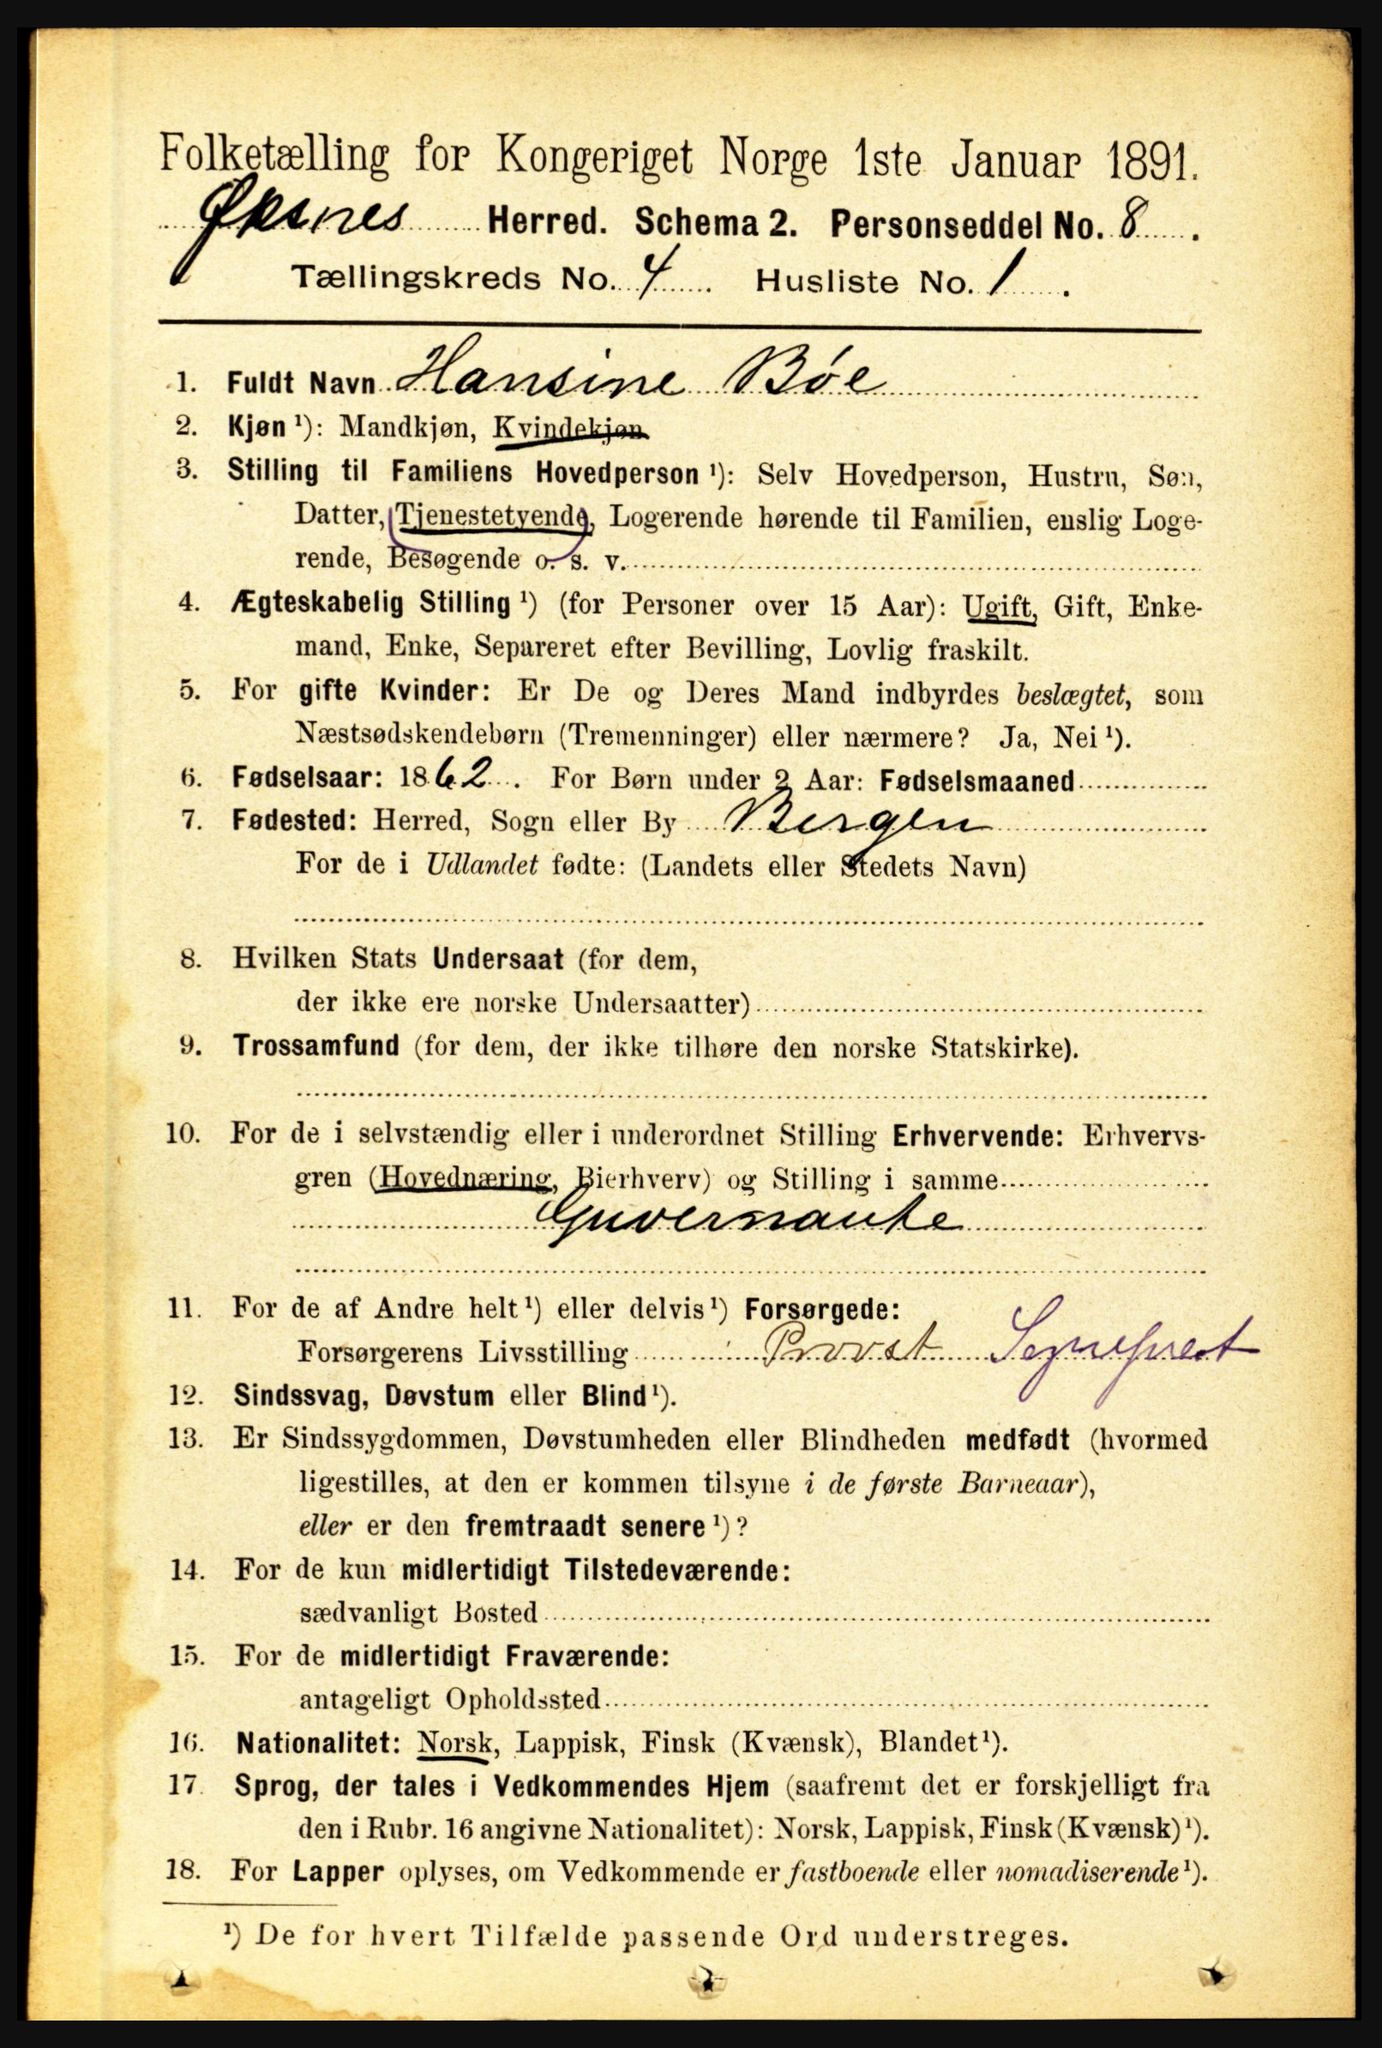 Folketælling for Kongeriget Norge 1ste Januar 1891.
Øksnes Herred. Schema 2. Personseddel No. 8.
Tællingskreds No. 4. Husliste No. 1.
1. Fuldt Navn Hansine Bøe
2. Kjøn ¹): Mandkjøn, Kvindekjøn
3. Stilling til Familiens Hovedperson ¹): Selv Hovedperson, Hustru, Søn,
Datter, Tjenestetyende, Logerende hørende til Familien, enslig Loge-
rende, Besøgende o. s. v.
4. Ægteskabelig Stilling ¹) (for Personer over 15 Aar): Ugift, Gift, Enke-
mand, Enke, Separeret efter Bevilling, Lovlig fraskilt.
5. For gifte Kvinder: Er De og Deres Mand indbyrdes beslægtet, som
Næstsødskendebørn (Tremenninger) eller nærmere? Ja, Nei ¹).
6. Fødselsaar: 1862. For Børn under 2 Aar: Fødselsmaaned
7. Fødested: Herred, Sogn eller By Bergen
For de i Udlandet fødte: (Landets eller Stedets Navn)
8. Hvilken Stats Undersaat (for dem,
der ikke ere norske Undersaatter)
9. Trossamfund (for dem, der ikke tilhøre den norske Statskirke).
10. For de i selvstændig eller i underordnet Stilling Erhvervende: Erhvervs-
gren (Hovednæring, Bierhverv) og Stilling i samme
Guvernante
11. For de af Andre helt ¹) eller delvis ¹) Forsørgede:
Forsørgerens Livsstilling Provst Sognepræst
12. Sindssvag, Døvstum eller Blind ¹).
13. Er Sindssygdommen, Døvstumheden eller Blindheden medfødt (hvormed
ligestilles, at den er kommen tilsyne i de første Barneaar),
eller er den fremtraadt senere ¹)?
14. For de kun midlertidigt Tilstedeværende:
sædvanligt Bosted
15. For de midlertidigt Fraværende:
antageligt Opholdssted
16. Nationalitet: Norsk, Lappisk, Finsk (Kvænsk), Blandet ¹).
17. Sprog, der tales i Vedkommendes Hjem (saafremt det er forskjelligt fra
den i Rubr. 16 angivne Nationalitet): Norsk, Lappisk, Finsk (Kvænsk) ¹).
18. For Lapper oplyses, om Vedkommende er fastboende eller nomadiserende ¹).
¹) De for hvert Tilfælde passende Ord understreges.